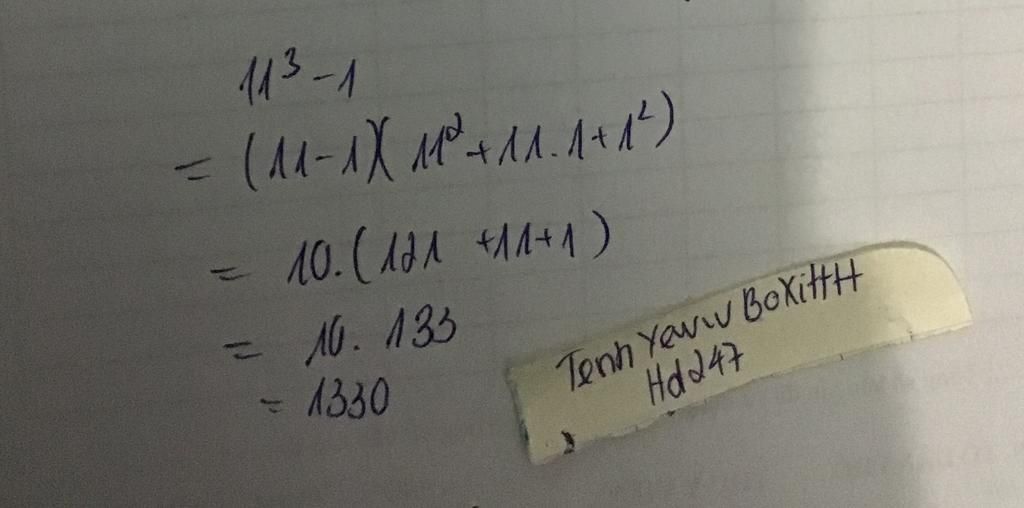 11³ - 1
= (11-1)(11² + 11.1 + 1²)
= 10.(121 +11+1)
= 10. 133
= 1330
Tenh Yavw BoXiHH
Hd247